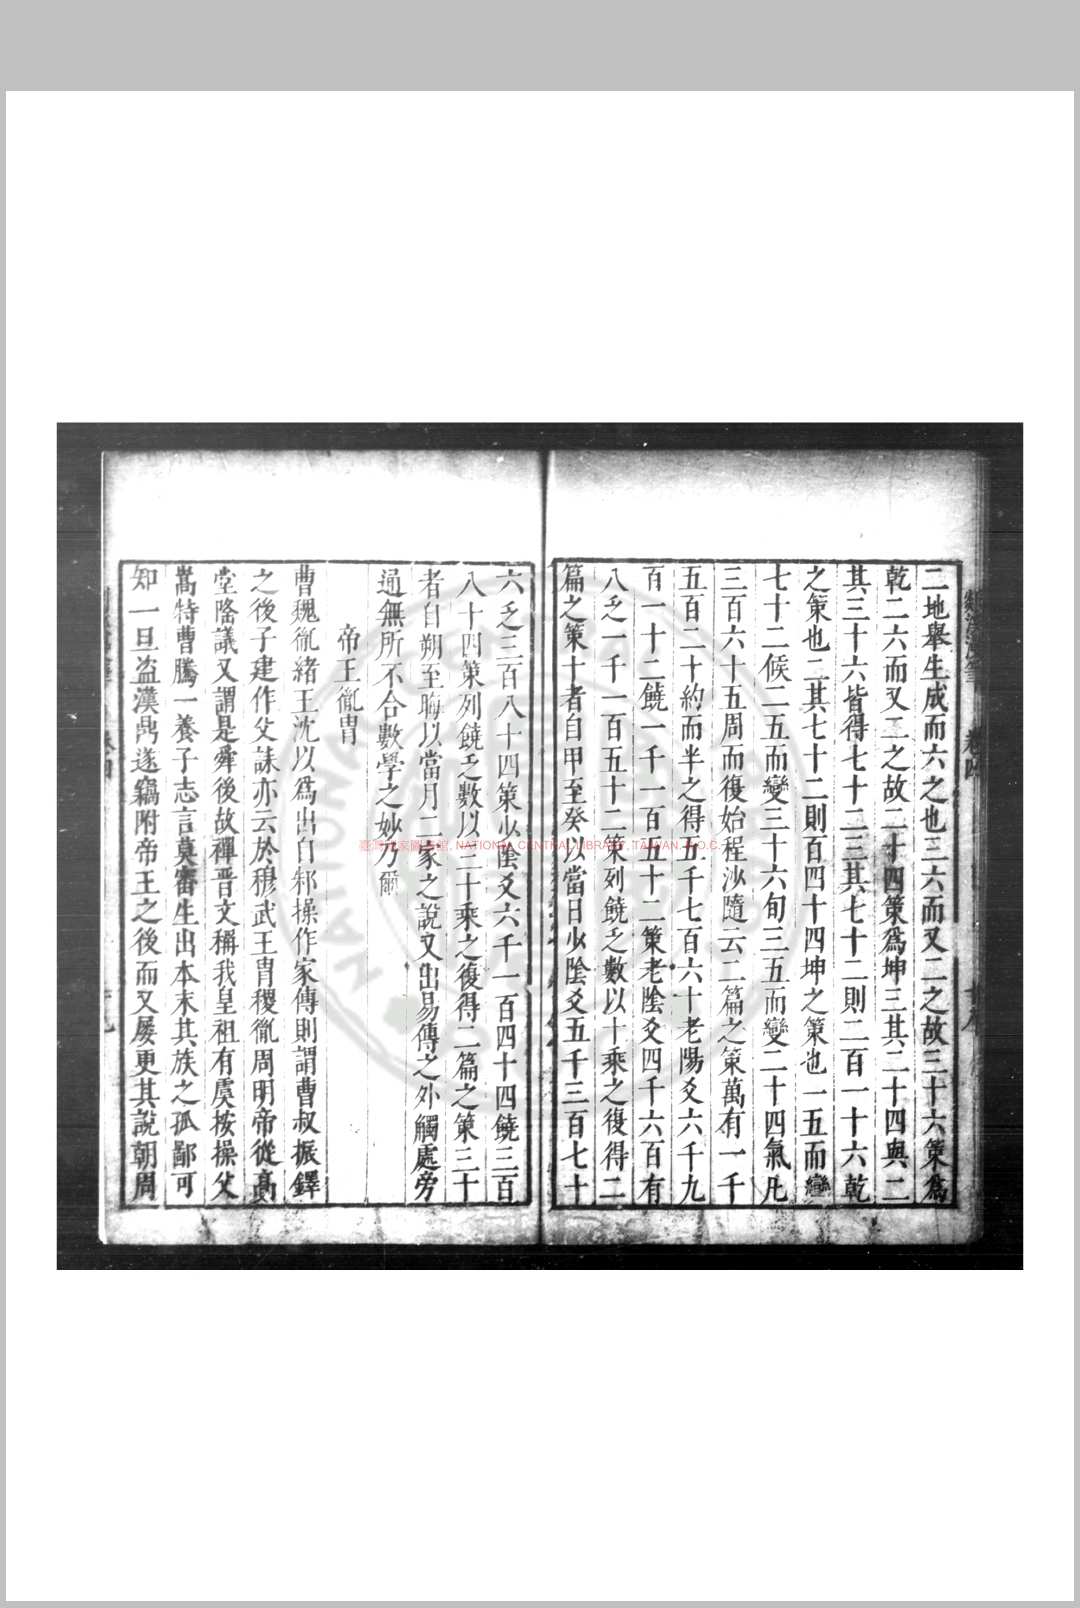 二地舉生成而六之也三六而又二之故三十六策爲
乾二六而又二之故二十四策爲坤三其二十四與二
其三十六皆得七十二三其七十二則二百一十六乾
之策也二其七十二則百四十四坤之策也一五而變
七十二候二五而變三十六旬三五而變二十四氣凡
三百六十五周而復始程沙隨云二篇之策萬有一千
五百二十約而半之得五千七百六十老陽爻六千九
百一十二饒一千一百五十二策老陰爻四千六百有
八乏一千一百五十二策列饒乏數以十乘之復得二
篇之策十者自甲至癸以當日少陰爻五千三百七十
六乏三百八十四策少陰爻六千一百四十四饒三百
八十四策列饒乏數以三十乘之復得二篇之策三十
者自朔至晦以當月二家之說又出易傳之外觸處旁
通無所不合數學之妙乃爾
帝王胤冑
曹魏胤緒王沈以爲出自邾操作家傳則謂曹叔振鐸
之後子建作父誄亦云於穆武王冑稷胤周明帝從高
堂隆議又謂是舜後故禪晋文稱我皇祖有虞按操父
嵩特曹騰一養子志言莫審生出本末其族之孤鄙可
知一旦盗漢鼎遂竊附帝王之後而又屢更其說朝周
卷四
臺灣國家圖書館, NATIONAL CENTRAL LIBRARY, TAIWAN, R.O.C.